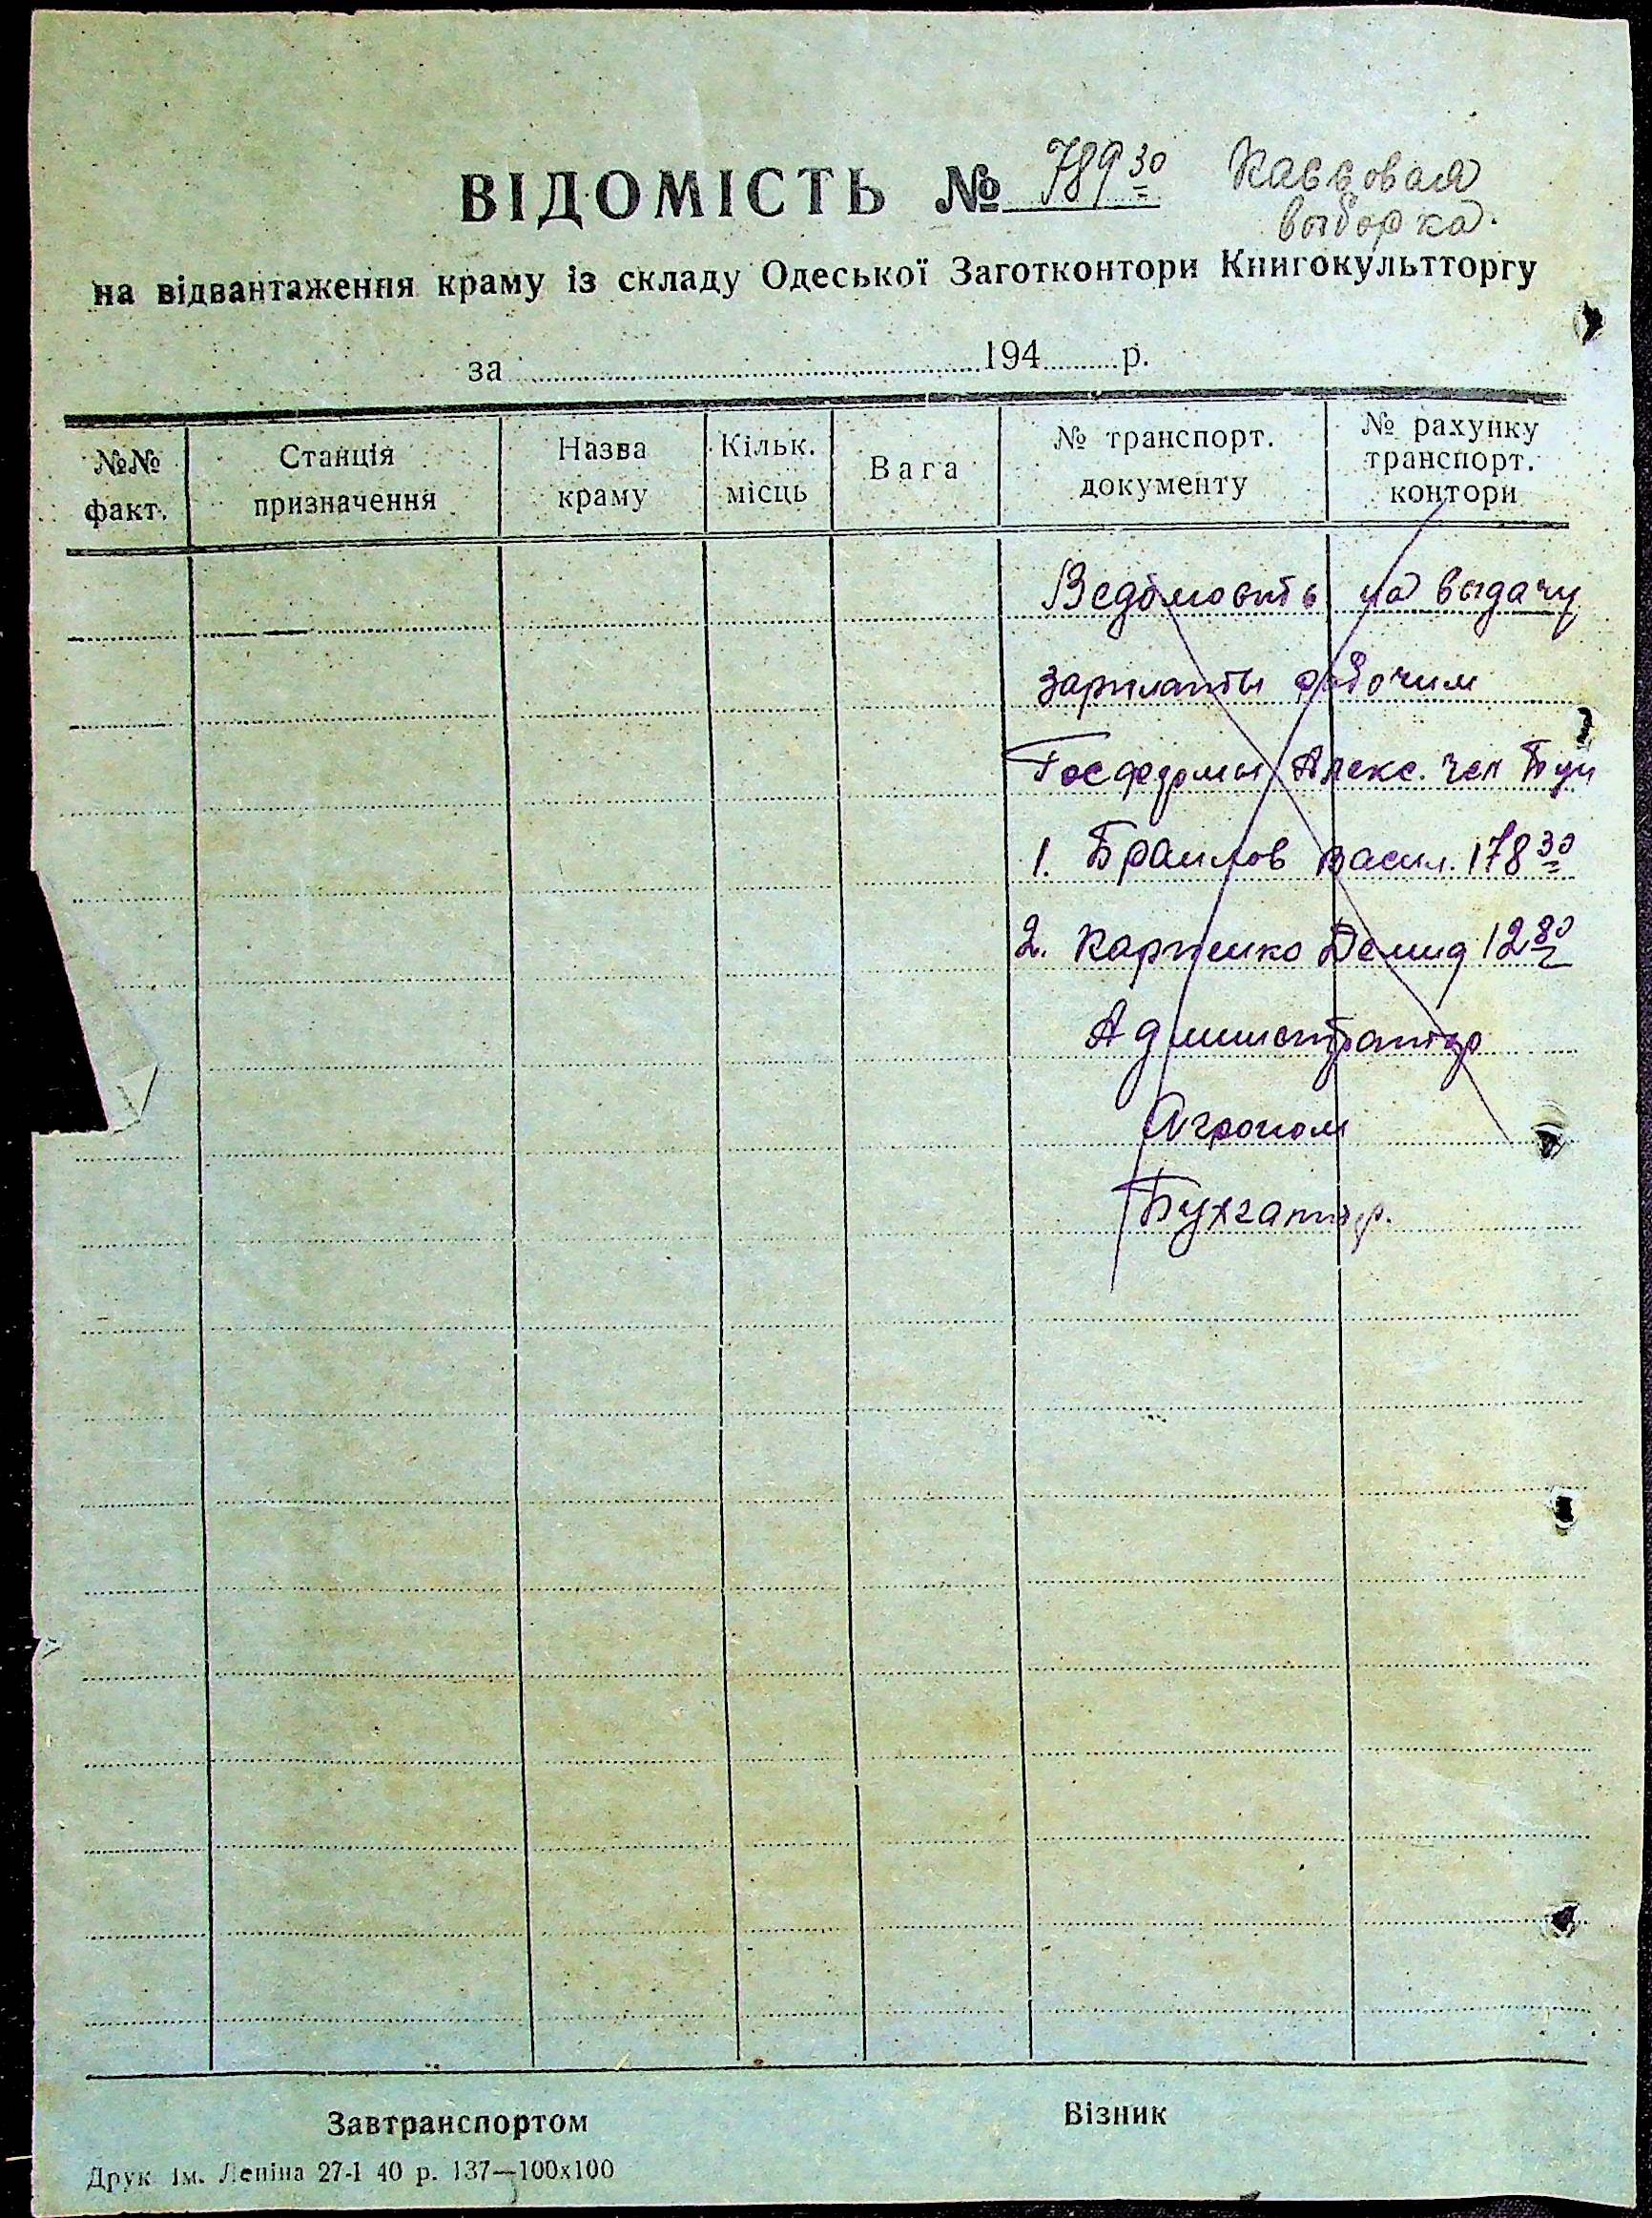 ВІДОМІСТЬ № 789 30 Кассовая
выборка.
на відвантаження краму із складу Одеської Заготконтори Книгокультторгу
за 194 р.
№№ факт.
Станція призначення
Назва краму
Кільк. місць
Вага
№ транспорт. документу
№ рахунку транспорт. контори
Ведомость на выдачу
зарплаты рабочим
Госфермы Алекс.
1. Браилов Васил. 178 30
2. Карпенко Демид 12 80
Администратор
Агроном
Бухгалтер.
Завтранспортом Візник
Друк ім. Леніна 27-І 40 р. 137—100х100